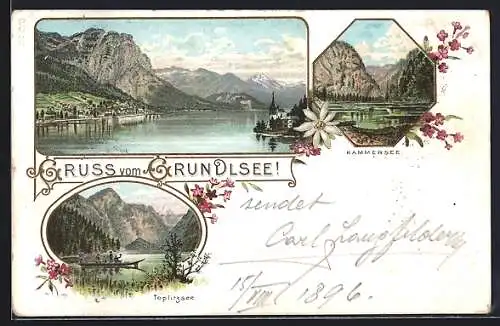 KAMMERSEE
GRUSS VOM GRUNDLSEE!
sendet
Carl
Toplitzsee
15/VIII 1896.